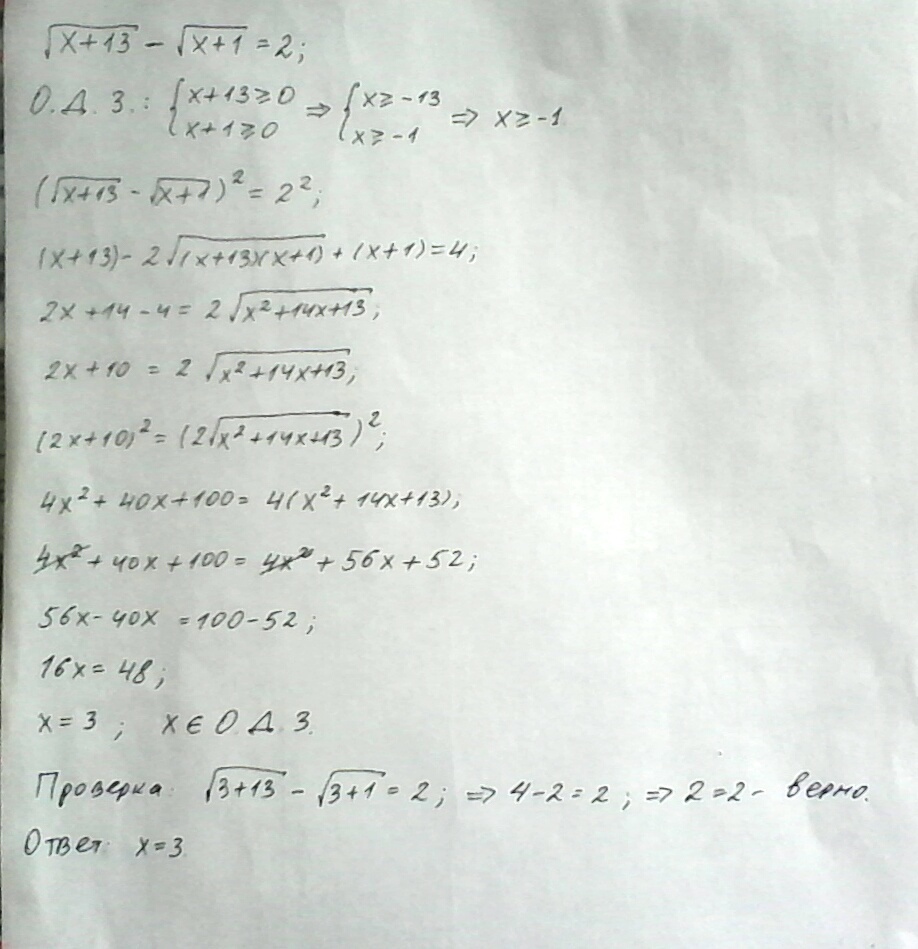 √(x+13) − √(x+1) = 2;
О.Д.З.: {x+13≥0 x+1≥0 ⇒ {x≥−13 x≥−1 ⇒ x≥−1
(√(x+13) − √(x+1))² = 2²;
(x+13) − 2√((x+13)(x+1)) + (x+1) = 4;
2x+14−4 = 2√(x²+14x+13);
2x+10 = 2√(x²+14x+13);
(2x+10)² = (2√(x²+14x+13))²;
4x²+40x+100 = 4(x²+14x+13);
4x²+40x+100 = 4x²+56x+52;
56x−40x = 100−52;
16x = 48;
x = 3; x ∈ О.Д.З.
Проверка: √(3+13) − √(3+1) = 2; ⇒ 4−2=2; ⇒ 2=2 − верно.
Ответ: x=3